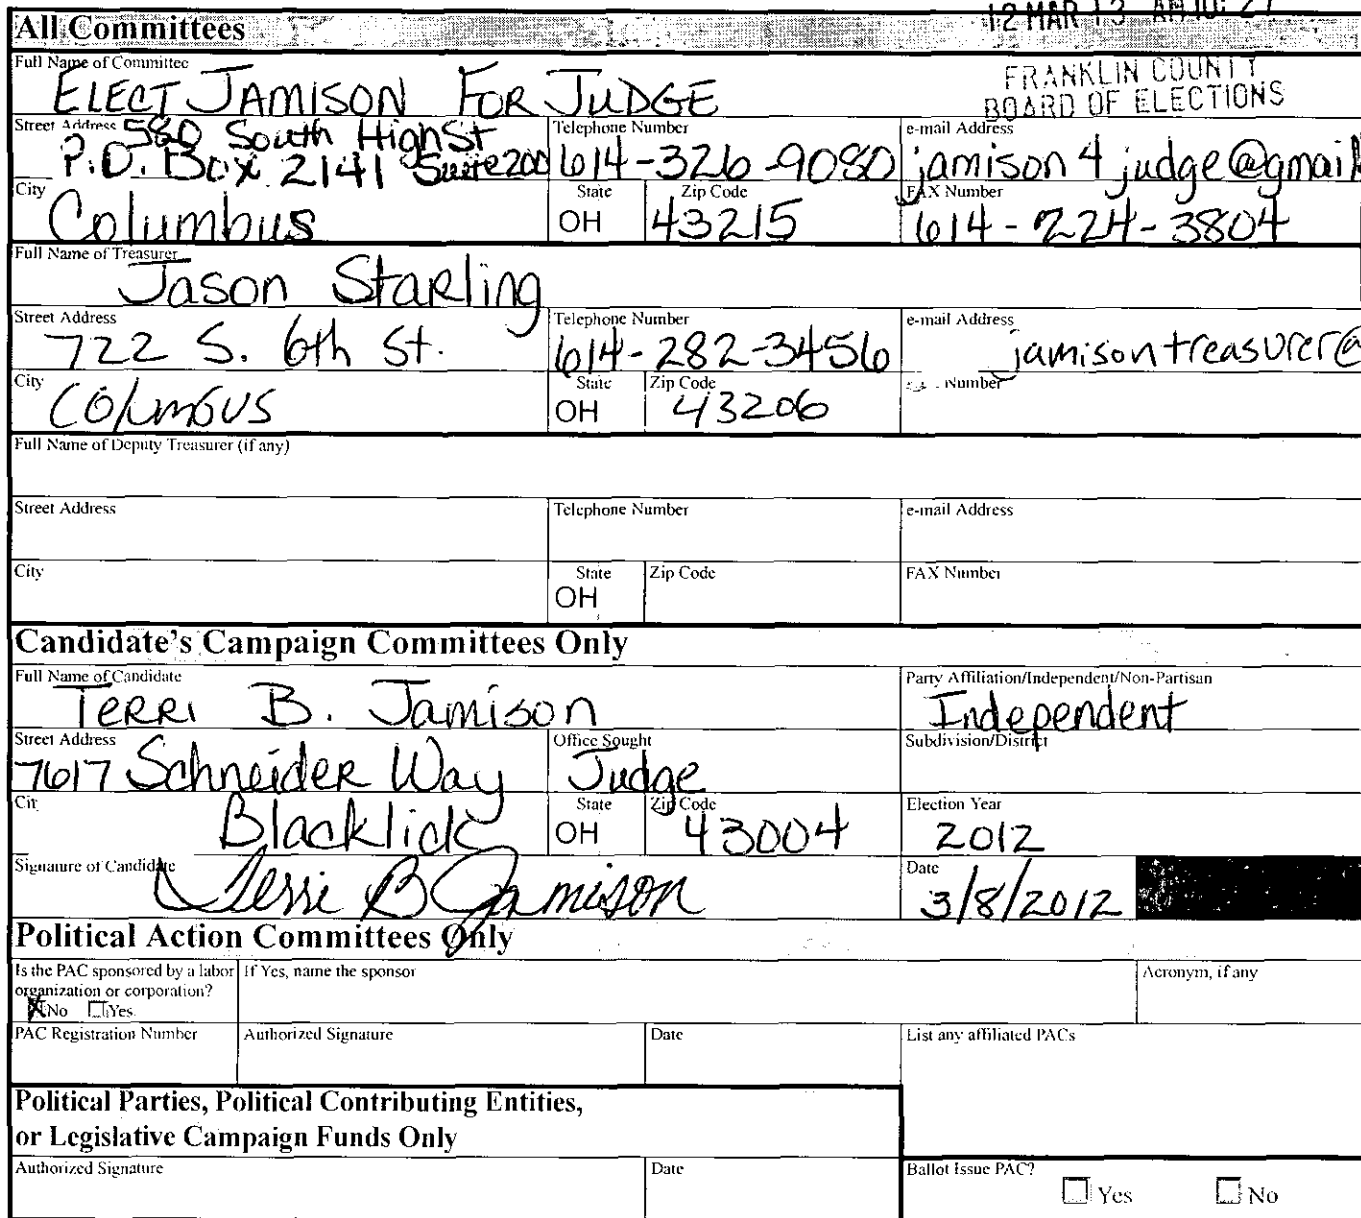 12 MAR 13 AM 10: 27
All Committees
FRANKLIN COUNTY
BOARD OF ELECTIONS
Full Name of Committee
ELECT JAMISON FOR JUDGE
Street Address 580 South High St
P.O. Box 2141 Suite 200
Telephone Number
614-326-9080
e-mail Address
jamison4judge@gmail
City
Columbus
State
OH
Zip Code
43215
FAX Number
614-224-3804
Full Name of Treasurer
Jason Starling
Street Address
722 S. 6th St.
Telephone Number
614-282-3456
e-mail Address
jamisontreasurer@
City
Columbus
State
OH
Zip Code
43206
Number
Full Name of Deputy Treasurer (if any)
Street Address
Telephone Number
e-mail Address
City
State
OH
Zip Code
FAX Number
Candidate's Campaign Committees Only
Full Name of Candidate
Terri B. Jamison
Party Affiliation/Independent/Non-Partisan
Independent
Street Address
7617 Schneider Way
Office Sought
Judge
Subdivision/District
City
Blacklick
State
OH
Zip Code
43004
Election Year
2012
Signature of Candidate
Terri B Jamison
Date
3/8/2012
Political Action Committees Only
Is the PAC sponsored by a labor
organization or corporation?
No Yes
If Yes, name the sponsor
Acronym, if any
PAC Registration Number
Authorized Signature
Date
List any affiliated PACs
Political Parties, Political Contributing Entities,
or Legislative Campaign Funds Only
Authorized Signature
Date
Ballot Issue PAC?
Yes No